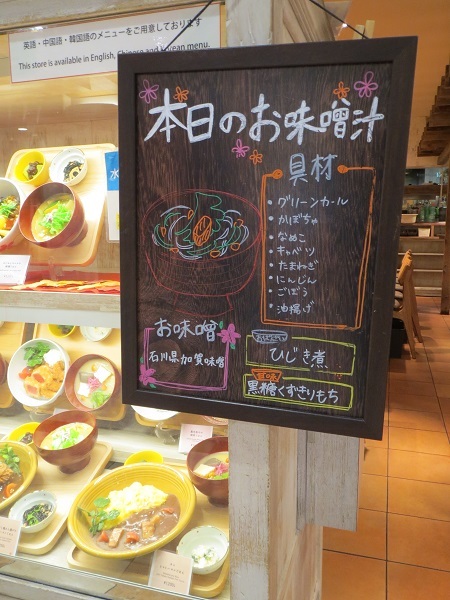 英語・中国語・韓国語のメニューをご用意しております
This store is available in English, Chinese and Korean menu.
本日のお味噌汁
具材
・グリーンカール
・かぼちゃ
・なめこ
・キャベツ
・たまねぎ
・にんじん
・ごぼう
・油揚げ
お味噌
石川県加賀味噌
ひじき煮
甘味
黒糖くずきりもち
水